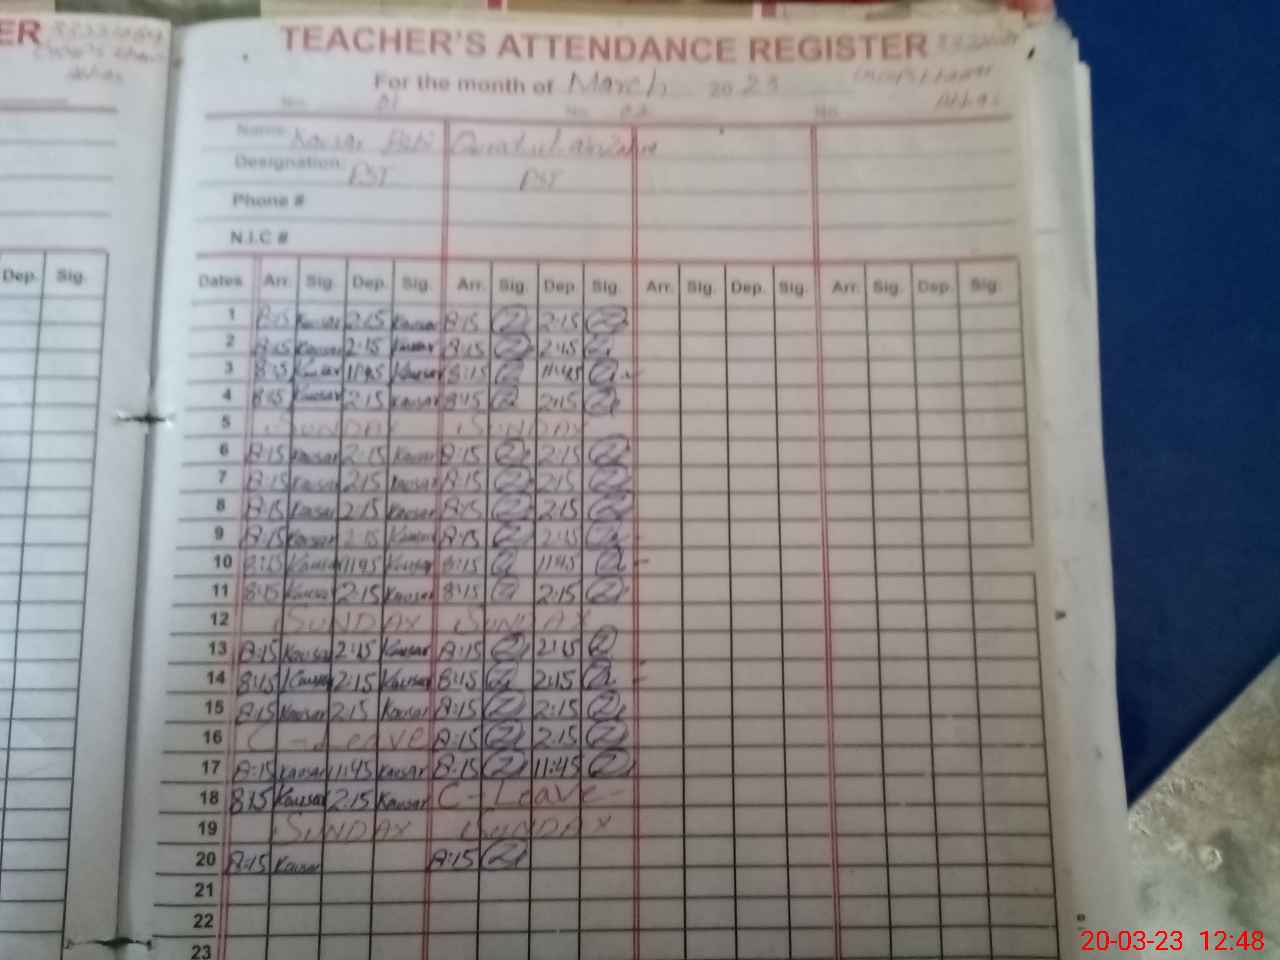 ER
TEACHER'S ATTENDANCE REGISTER
For the month of March 2023
No. 01 No. 02 No.
Name Kausar Bibi
Designation PST PST
Phone #
N.I.C #
Dep. Sig.
Dates Arr. Sig. Dep. Sig. Arr. Sig. Dep. Sig. Arr. Sig. Dep. Sig. Arr. Sig. Dep. Sig.
1 8:15 Kausar 2:15 Kausar 8:15 2:15
2 8:15 Kausar 2:15 Kausar 8:15 2:15
3 8:15 Kausar 11:45 Kausar 8:15 11:45
4 8:15 Kausar 2:15 Kausar 8:15 2:15
5 SUNDAY SUNDAY
6 8:15 Kausar 2:15 Kausar 8:15 2:15
7 8:15 Kausar 2:15 Kausar 8:15 2:15
8 8:15 Kausar 2:15 Kausar 8:15 2:15
9 8:15 Kausar 2:15 Kausar 8:15 2:15
10 8:15 Kausar 11:45 Kausar 8:15 11:45
11 8:15 Kausar 2:15 Kausar 8:15 2:15
12 SUNDAY SUNDAY
13 8:15 Kausar 2:15 Kausar 8:15 2:15
14 8:15 Kausar 2:15 Kausar 8:15 2:15
15 8:15 Kausar 2:15 Kausar 8:15 2:15
16 C - Leave 8:15 2:15
17 8:15 Kausar 11:45 Kausar 8:15 11:45
18 8:15 Kausar 2:15 Kausar C - Leave -
19 SUNDAY SUNDAY
20 8:15 Kausar 8:15
21
22
23
20-03-23 12:48